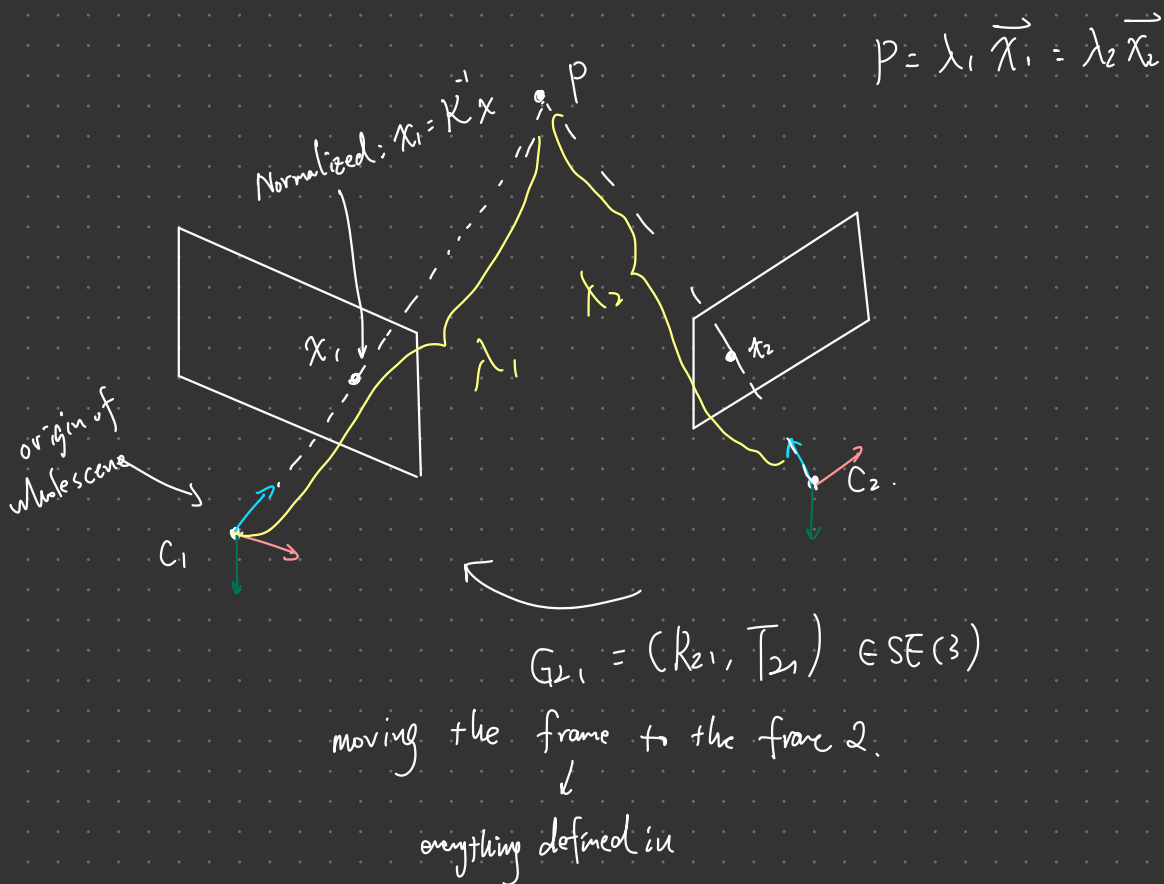 P = λ₁ x₁⃗ = λ₂ x₂⃗
P
Normalized: x₁ = K⁻¹x
x₁
λ₁
λ₂
x₂
origin of
whole scene
C₁
C₂.
G₂₁ = (R₂₁, T₂₁) ∈ SE(3)
moving the frame to the frame 2.
everything defined in